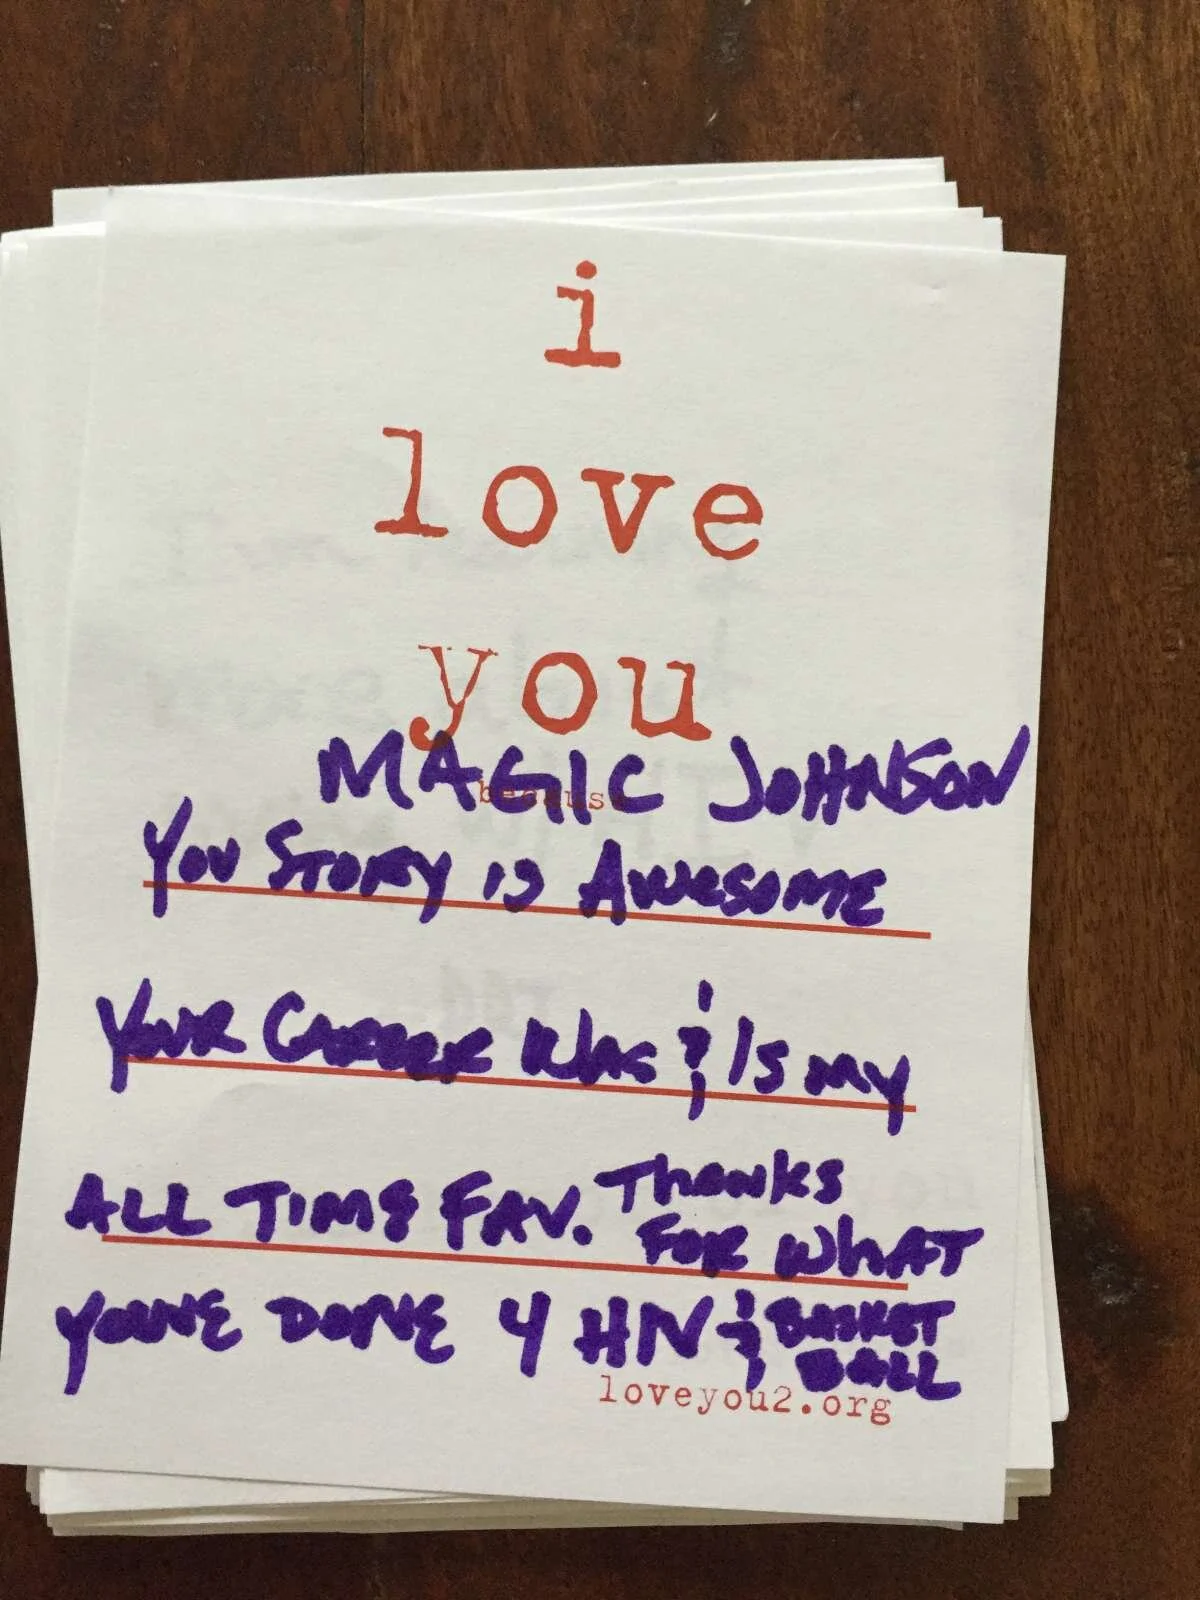 i
love
you
because
MAGIC JOHNSON
YOU STORY IS AWESOME
YOUR CAREER WAS & IS MY
ALL TIME FAV. Thanks
FOR WhAT
YOUVE DONE 4 HIV & BASKET
BALL
loveyou2.org